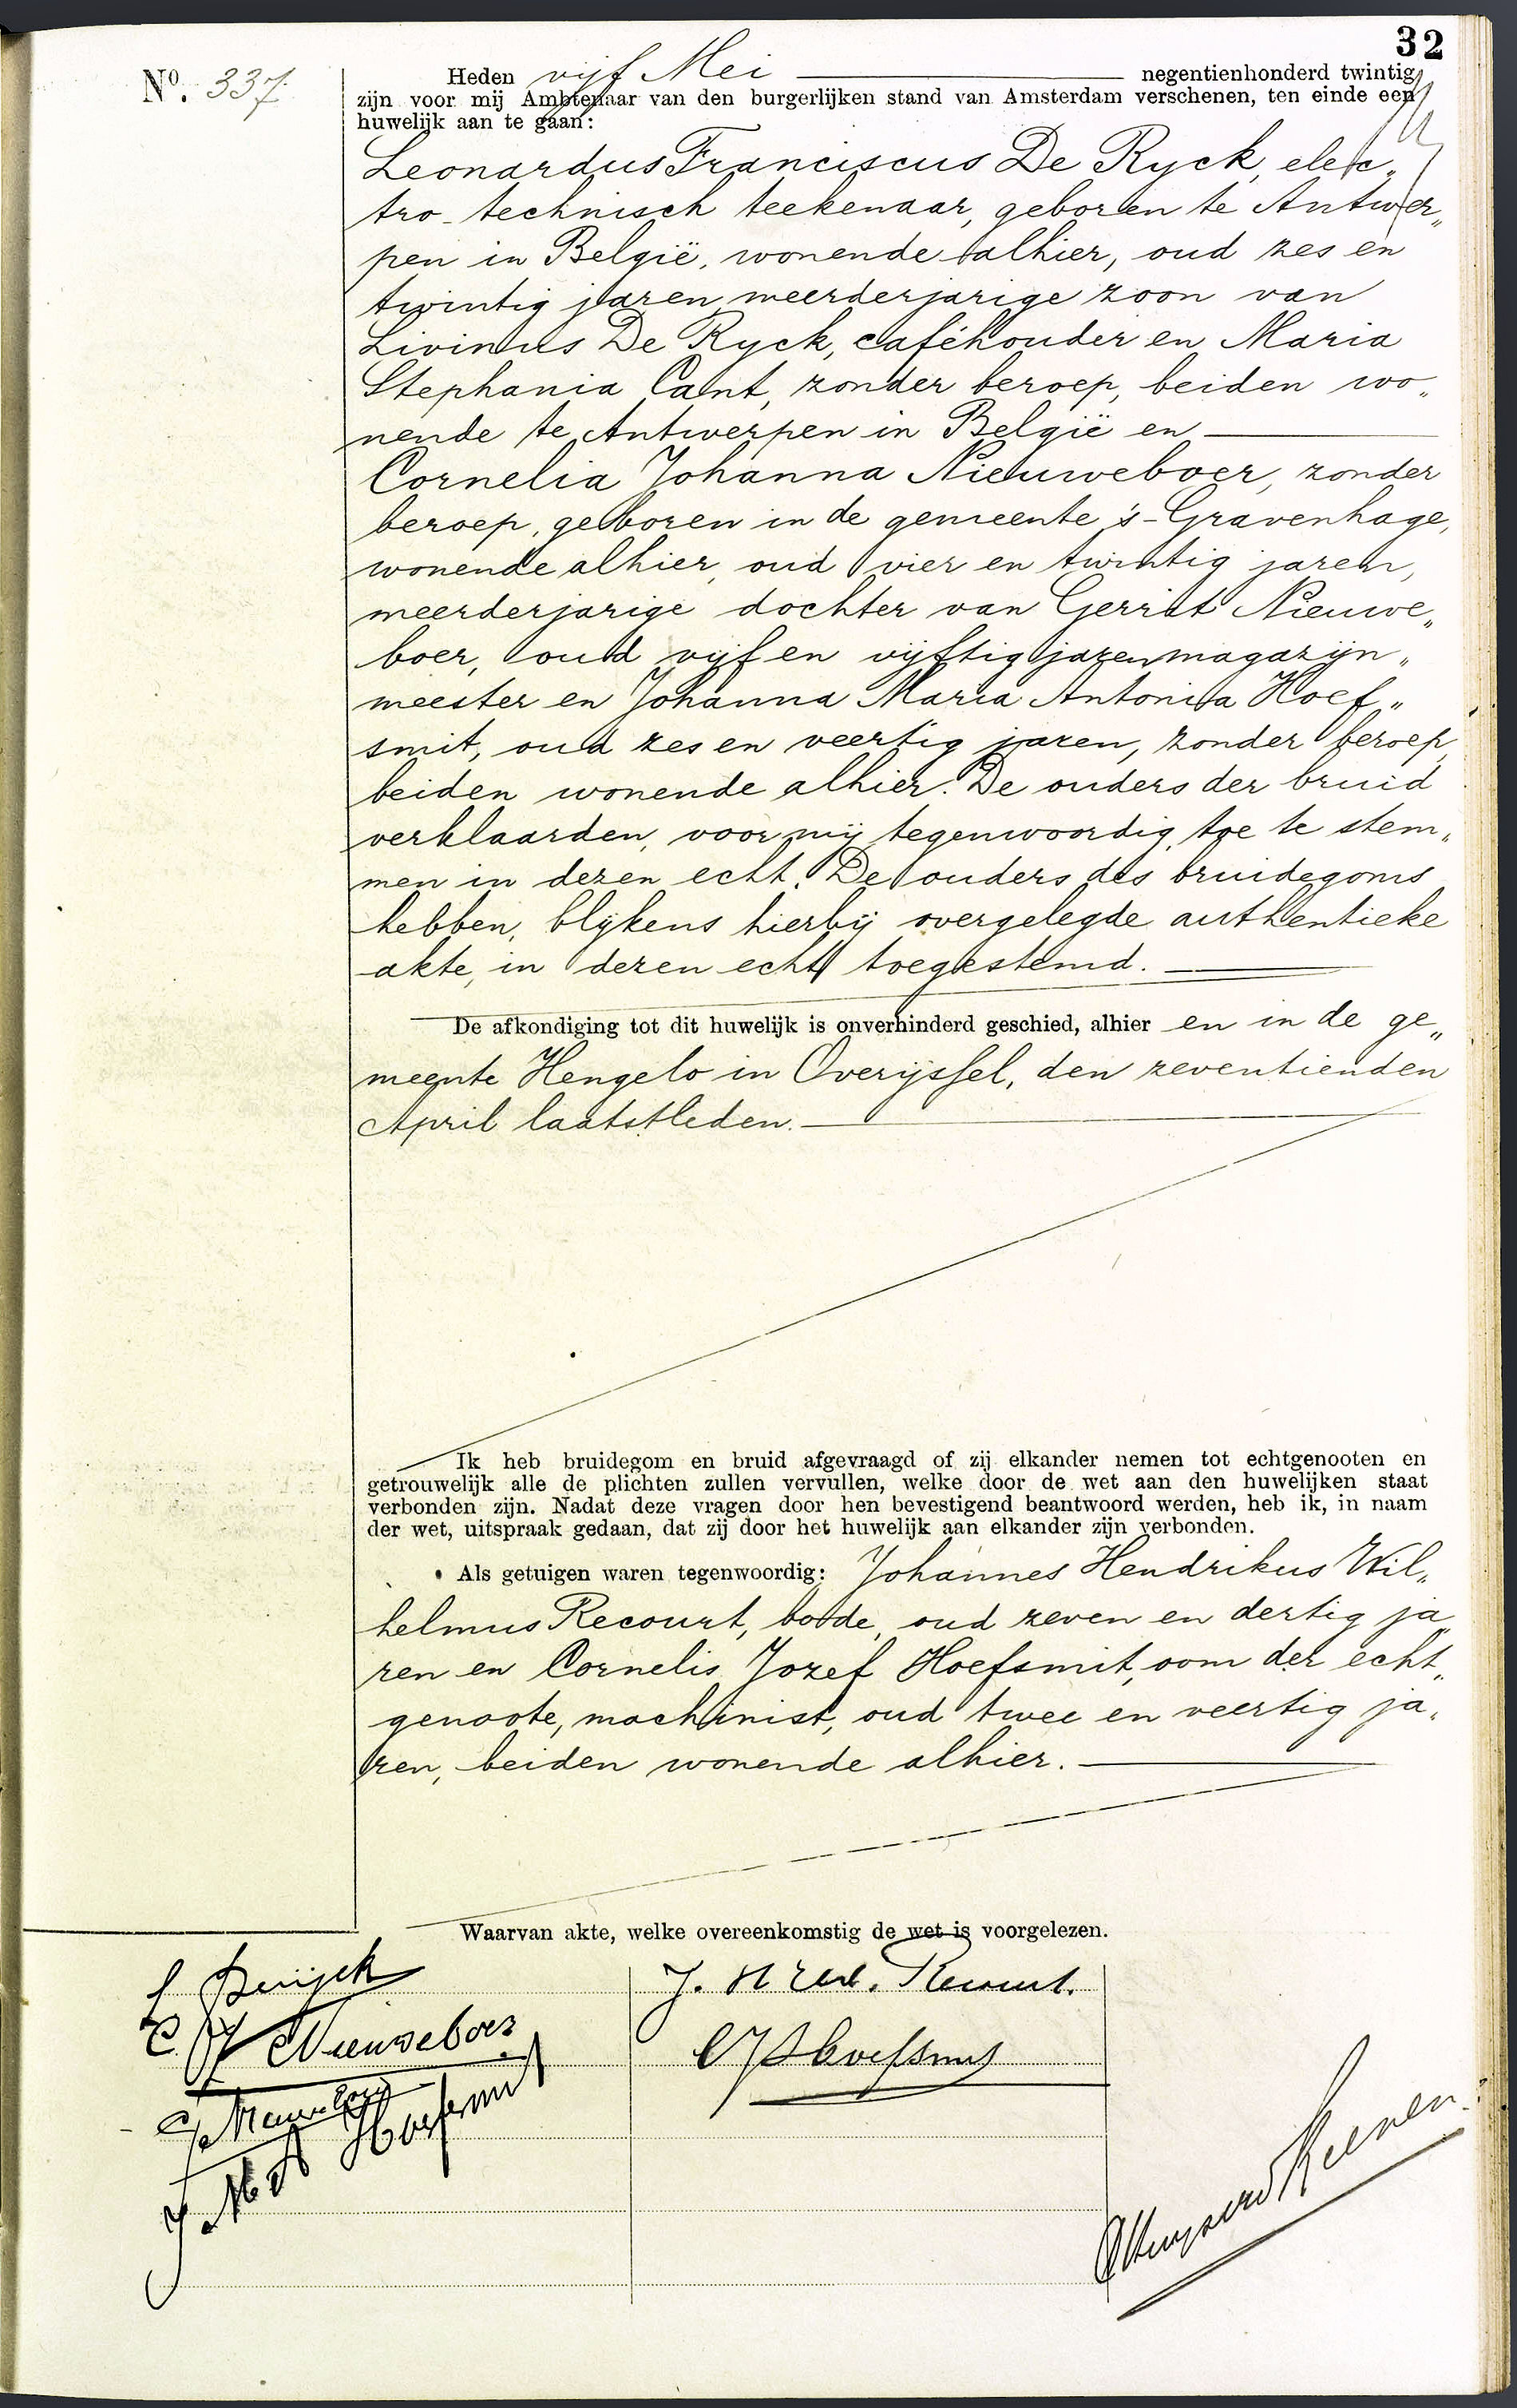 32
No. 337.
Heden vijf Mei negentienhonderd twintig
zijn voor mij Ambtenaar van den burgerlijken stand van Amsterdam verschenen, ten einde een
huwelijk aan te gaan:
Leonardus Franciscus De Ryck, elec„
tro-technisch teekenaar, geboren te Antwer„
pen in België, wonende alhier, oud zes en
twintig jaren meerderjarige zoon van
Livinus De Ryck, caféhouder en Maria
Stephania Cant, zonder beroep, beiden wo„
nende te Antwerpen in België en
Cornelia Johanna Nieuweboer, zonder
beroep, geboren in de gemeente 's-Gravenhage,
wonende alhier, oud vier en twintig jaren,
meerderjarige dochter van Gerrit Nieuwe„
boer, oud vijf en vijftig jaren magazijn„
meester en Johanna Maria Antonia Hoef„
smit, oud zes en veertig jaren, zonder beroep,
beiden wonende alhier. De ouders der bruid
verklaarden, voor mij tegenwoordig, toe te stem„
men in dezen echt. De ouders des bruidegoms
hebben, blijkens hierbij overgelegde authentieke
akte, in dezen echt toegestemd.
De afkondiging tot dit huwelijk is onverhinderd geschied, alhier en in de ge„
meente Hengelo in Overijssel, den zeventienden
April laatstleden.
Ik heb bruidegom en bruid afgevraagd of zij elkander nemen tot echtgenooten en
getrouwelijk alle de plichten zullen vervullen, welke door de wet aan den huwelijken staat
verbonden zijn. Nadat deze vragen door hen bevestigend beantwoord werden, heb ik, in naam
der wet, uitspraak gedaan, dat zij door het huwelijk aan elkander zijn verbonden.
Als getuigen waren tegenwoordig: Johannes Hendrikus Wil„
helmus Recourt, bode, oud zeven en dertig ja„
ren en Cornelis Jozef Hoefsmit, oom der echt„
genoote, machinist, oud twee en veertig ja„
ren, beiden wonende alhier.
Waarvan akte, welke overeenkomstig de wet is voorgelezen.
L Derijck
J. H Wil. Recourt.
C. J Nieuweboer
C J Hoefsmit
G Nieuweboer
J. M A Hoefsmit